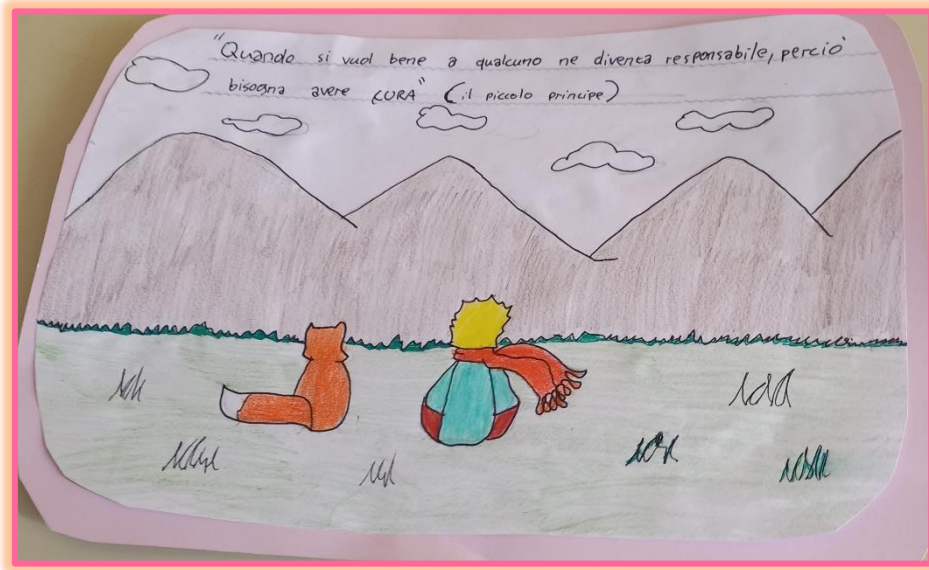 "Quando si vuol bene a qualcuno ne diventa responsabile, perciò
bisogna avere CURA" (il piccolo principe)